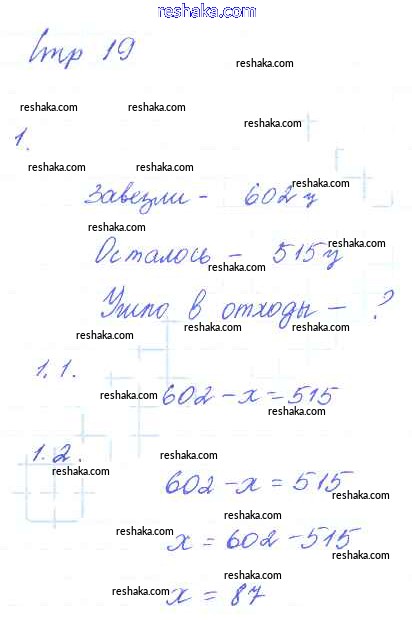 reshaka.com
Стр 19
reshaka.com
reshaka.com reshaka.com
reshaka.com
1.
reshaka.com reshaka.com
reshaka.com
Завезли - 602 ц
reshaka.com
reshaka.com
Осталось - 515 ц
reshaka.com
Ушло в отходы - ?
reshaka.com reshaka.com
1.1.
reshaka.com
602 - x = 515
reshaka.com
1.2.
reshaka.com
reshaka.com
602 - x = 515
reshaka.com
reshaka.com
reshaka.com
x = 602 - 515
reshaka.com
reshaka.com
reshaka.com
x = 87
reshaka.com